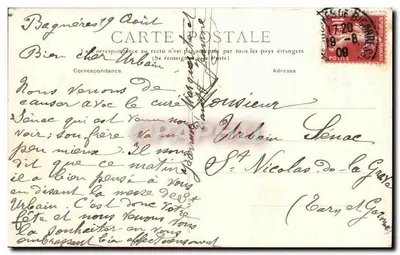 Bagnères 19 Août
CARTE POSTALE
La correspondance au recto n'est pas acceptée par tous les pays étrangers
(Se renseigner à la Poste)
Correspondance
Adresse
Bien cher Urbain
Nous venons de
causer avec le curé
Sénac qui est venu nous
voir; son frère va un
peu mieux. Il nous
dit que ce matin
il a bien pensé à vous
en disant la messe de St
Urbain. C'est donc votre
fête et nous venons vous
la souhaiter en vous
embrassant bien affectueusement
Monsieur
Urbain Sénac
St Nicolas-de-la Grave
(Tarn et Garonne)
POSTES